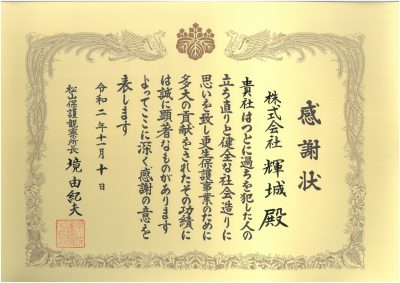 感謝状
株式会社 輝城 殿
貴社はつとに過ちを犯した人の
立ち直りと健全な社会造りに
思いを致し更生保護事業のために
多大の貢献をされたその功績に
は誠に顕著なものがあります
よってここに深く感謝の意を
表します
令和二年十一月十日
松山保護観察所長 境 由紀夫